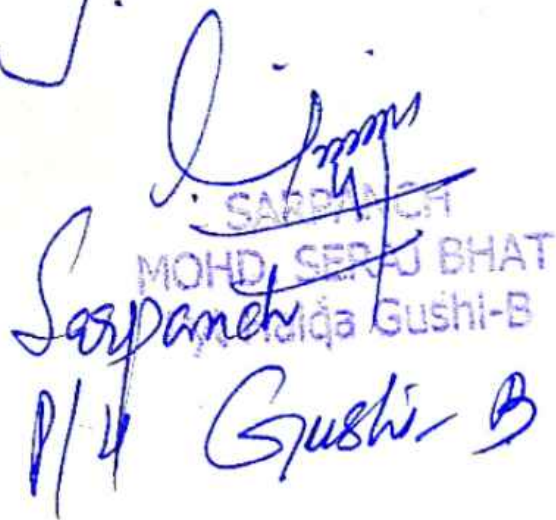 SARPANCH
MOHD SERAJ BHAT
Gushi-B
Sarpanch
P/H Gushi-B